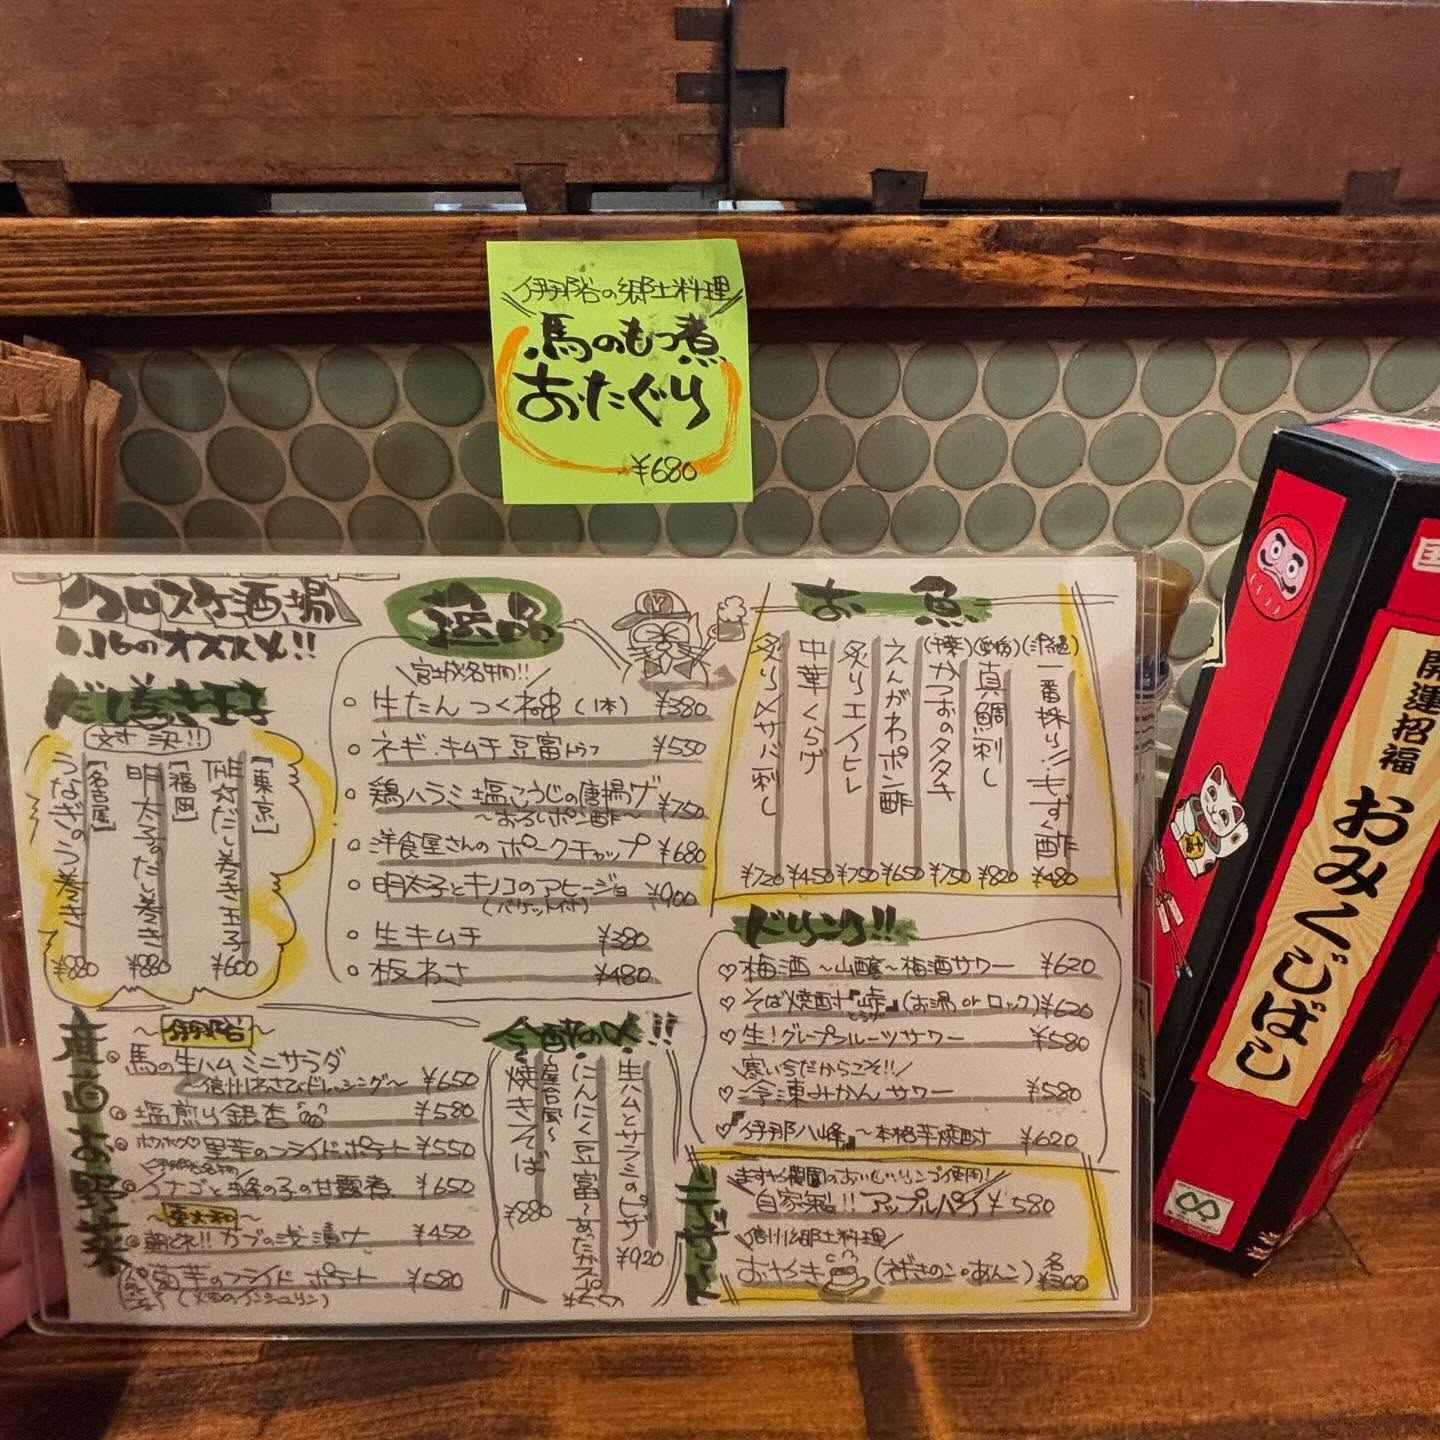 伊那谷の郷土料理
馬のもつ煮
おたぐり
¥680
クロスケ酒場
オススメ!!
だし巻き玉子
対決!!
【東京】
だし巻き玉子
¥600
【福岡】
明太子のだし巻き
¥880
【名古屋】
うなぎのう巻き
¥880
逸品
宮城名物!!
生たんつくね串(1本) ¥380
ネギ・キムチ豆富 ¥550
鶏ハラミ塩こうじの唐揚げ ¥750
〜おろしポン酢〜
洋食屋さんのポークチャップ ¥680
明太子とキノコのアヒージョ ¥900
(バケット付)
生キムチ ¥380
板わさ ¥480
お魚
(沖縄)
一番採り!!もずく酢
¥480
真鯛刺し
¥820
(千葉)
かつおのタタキ
¥750
えんがわポン酢
¥650
炙りエイヒレ
¥750
中華くらげ
¥450
炙り〆サバ刺し
¥720
ドリンク!!
梅酒〜山醸〜梅酒サワー ¥620
そば焼酎『峠』(お湯orロック) ¥620
とうげ
生!グレープフルーツサワー ¥580
寒い今だからこそ!!
冷凍みかんサワー ¥580
『伊那八峰』〜本格芋焼酎 ¥620
〜伊那谷〜
馬の生ハムミニサラダ
〜信州わさびドレッシング〜 ¥650
塩煎り銀杏 ¥580
ホクホク
里芋のフライドポテト ¥550
伊那谷名物
イナゴと蜂の子の甘露煮 ¥650
朝どれ!!カブの浅漬け ¥450
菊芋のフライドポテト ¥580
(天然のインシュリン)
今酔の〆!!
生ハムとサラミのピザ
¥920
にんにく豆富〜あったかスープ
¥550
〜屋台風〜
焼きそば
¥880
ますやま農園のおいしいリンゴ使用!
自家製!!アップルパイ ¥580
信州郷土料理
おやき(ねぎみそ・あんこ) 各¥300
開運招福
おみくじばし
国